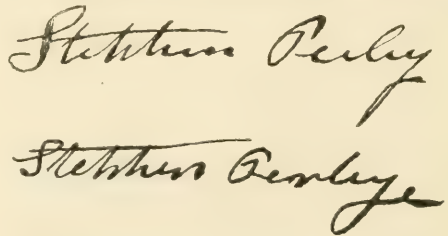 Stephen Perley
Stephen Perley